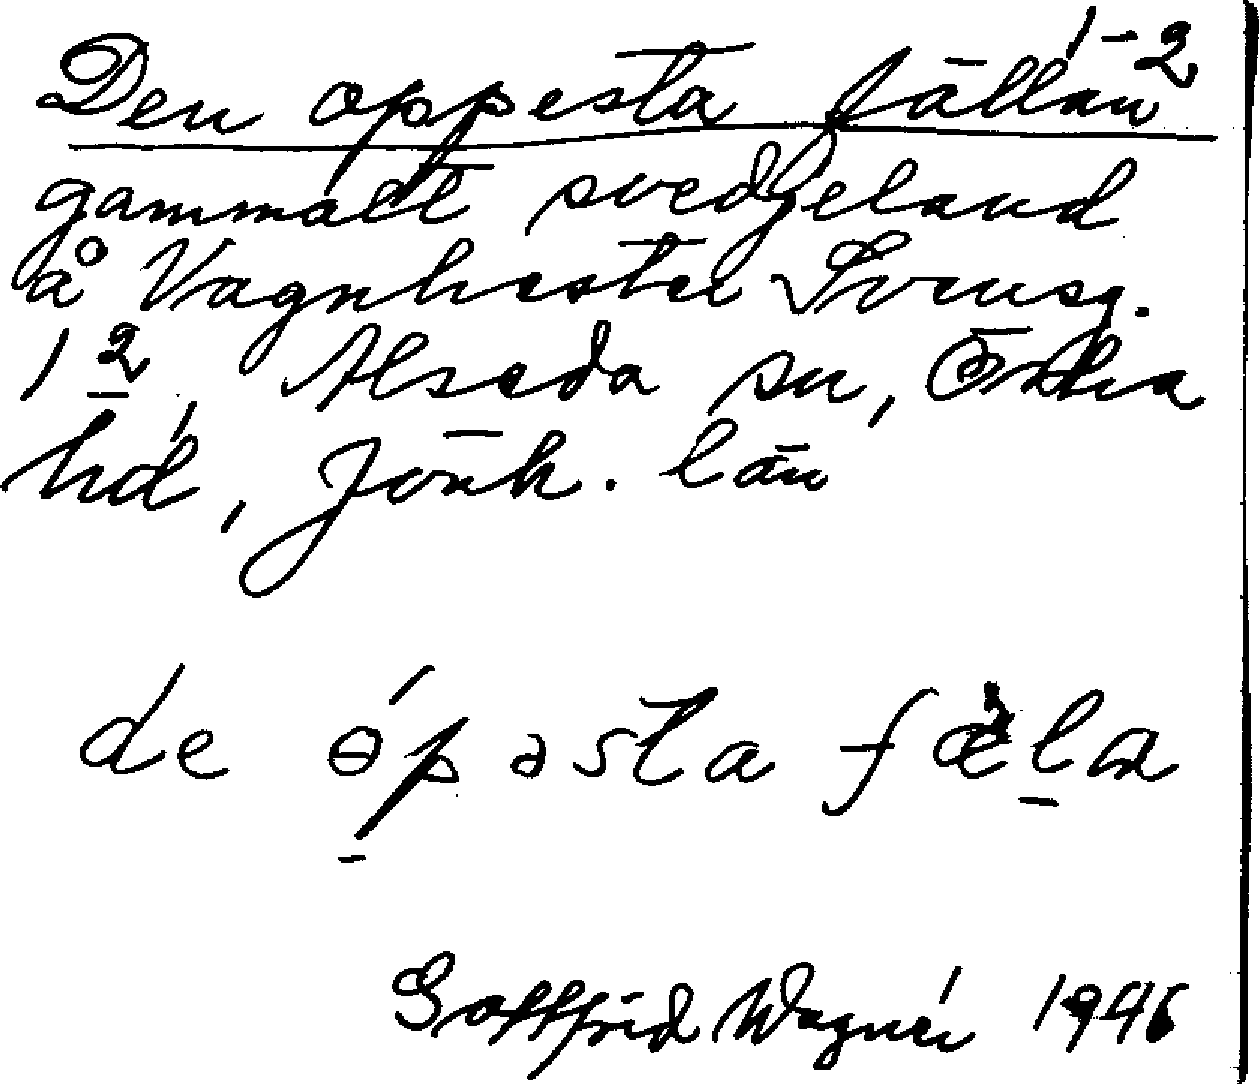 1-2
Den oppesta fällan
gammalt svedjeland
å Vagnhester Svensg.
1 2, Alseda sn, Östra
hd, Jönk. län
de ɵ́pəsta fæ̀la
Gottfrid Wagnér 1946